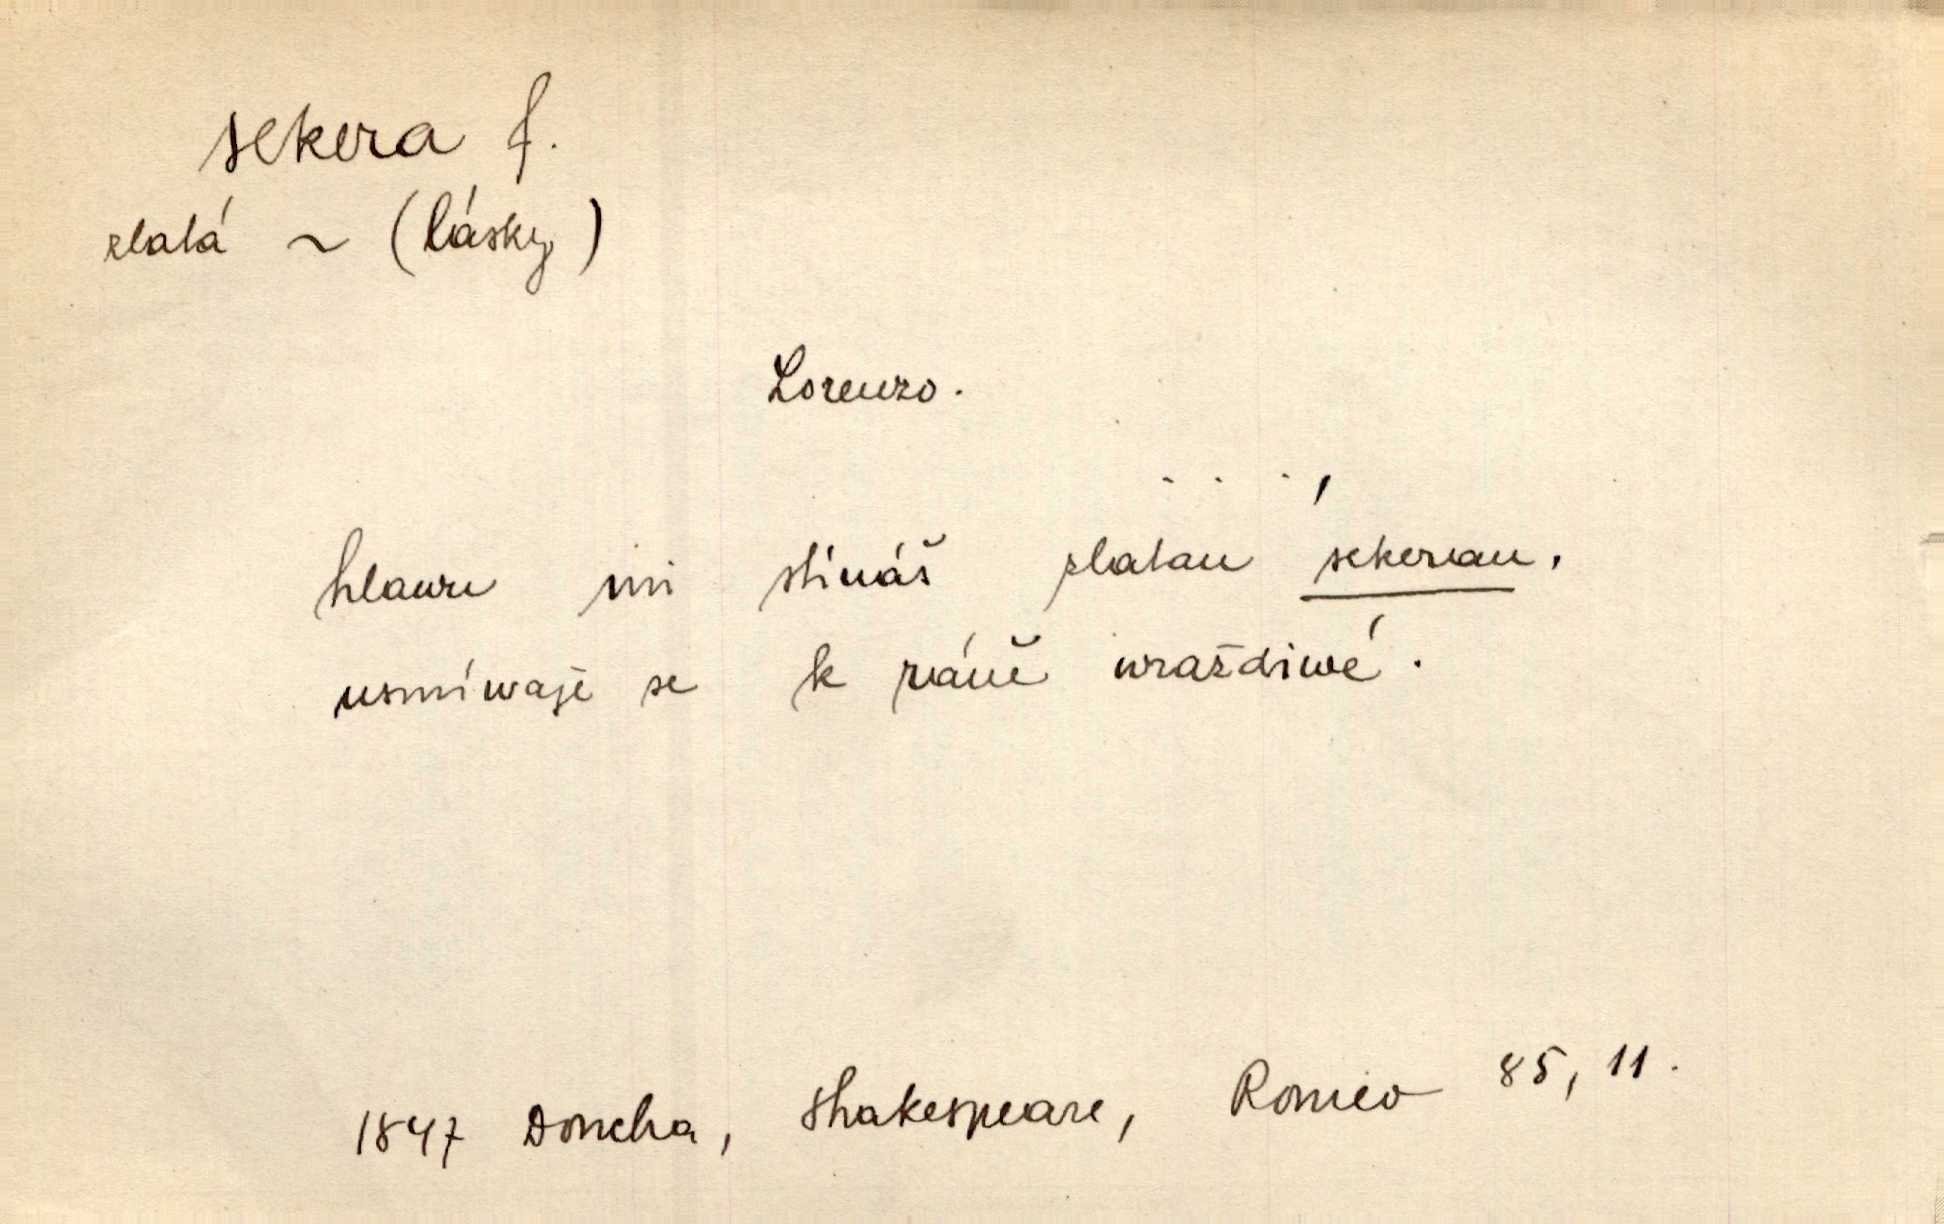 sekera f.
zlatá ~ (lásky)
Lorenzo.
. . . ,
hlawu mi stínáš zlatau sekerau,
usmíwaje se k ráně wraždiwé.
1847 Doucha, Shakespeare, Romeo 85, 11.